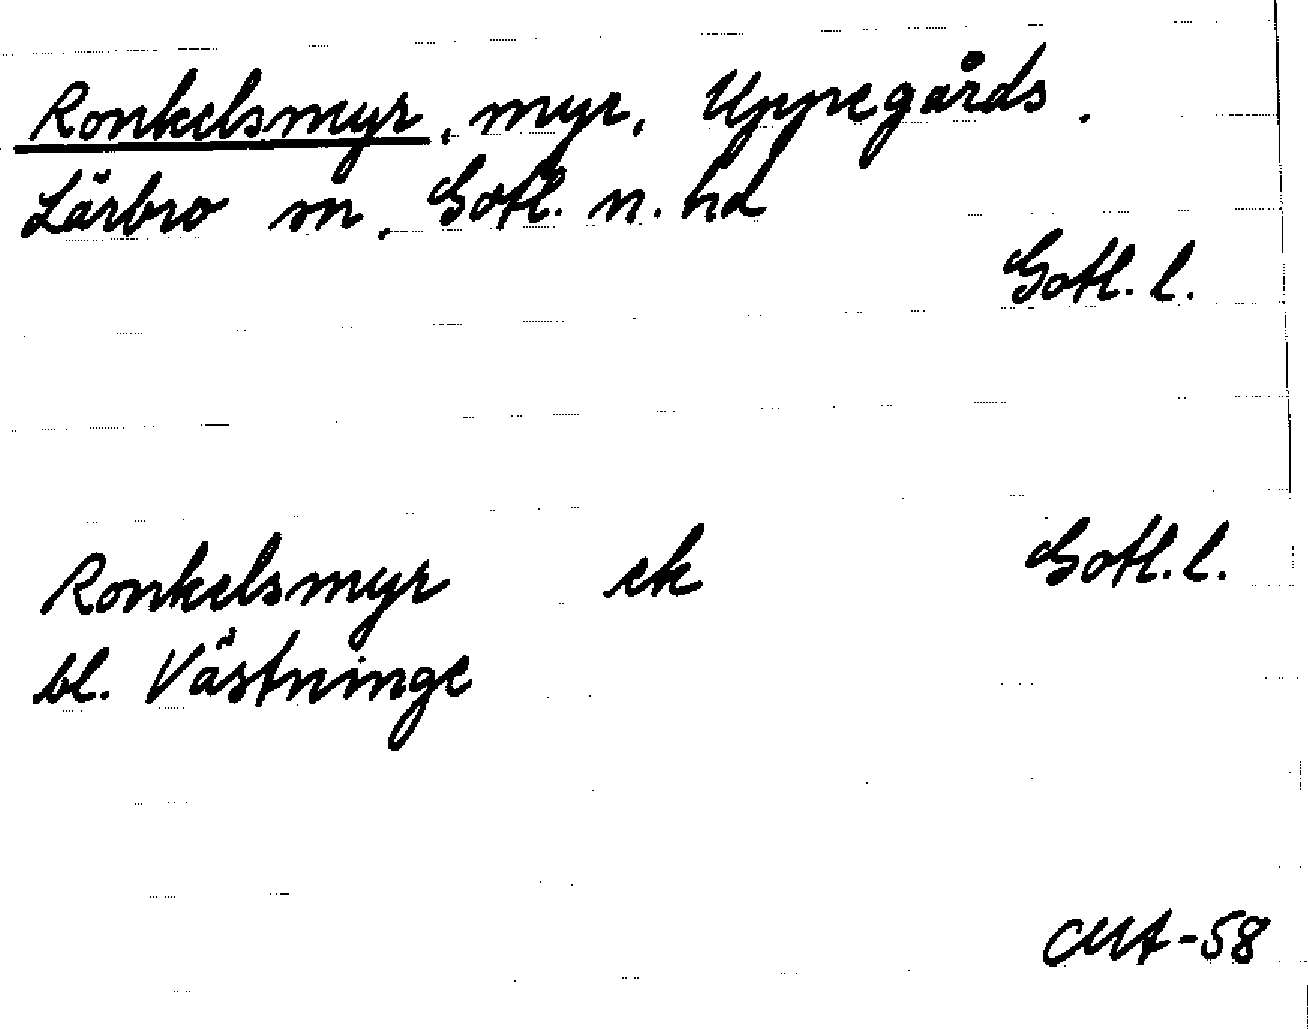 Ronkelsmyr, myr, Uppegårds.
Lärbro sn, Gotl. n. hd
Gotl. l.
Ronkelsmyr ek Gotl. l.
bl. Västninge
CMA-58